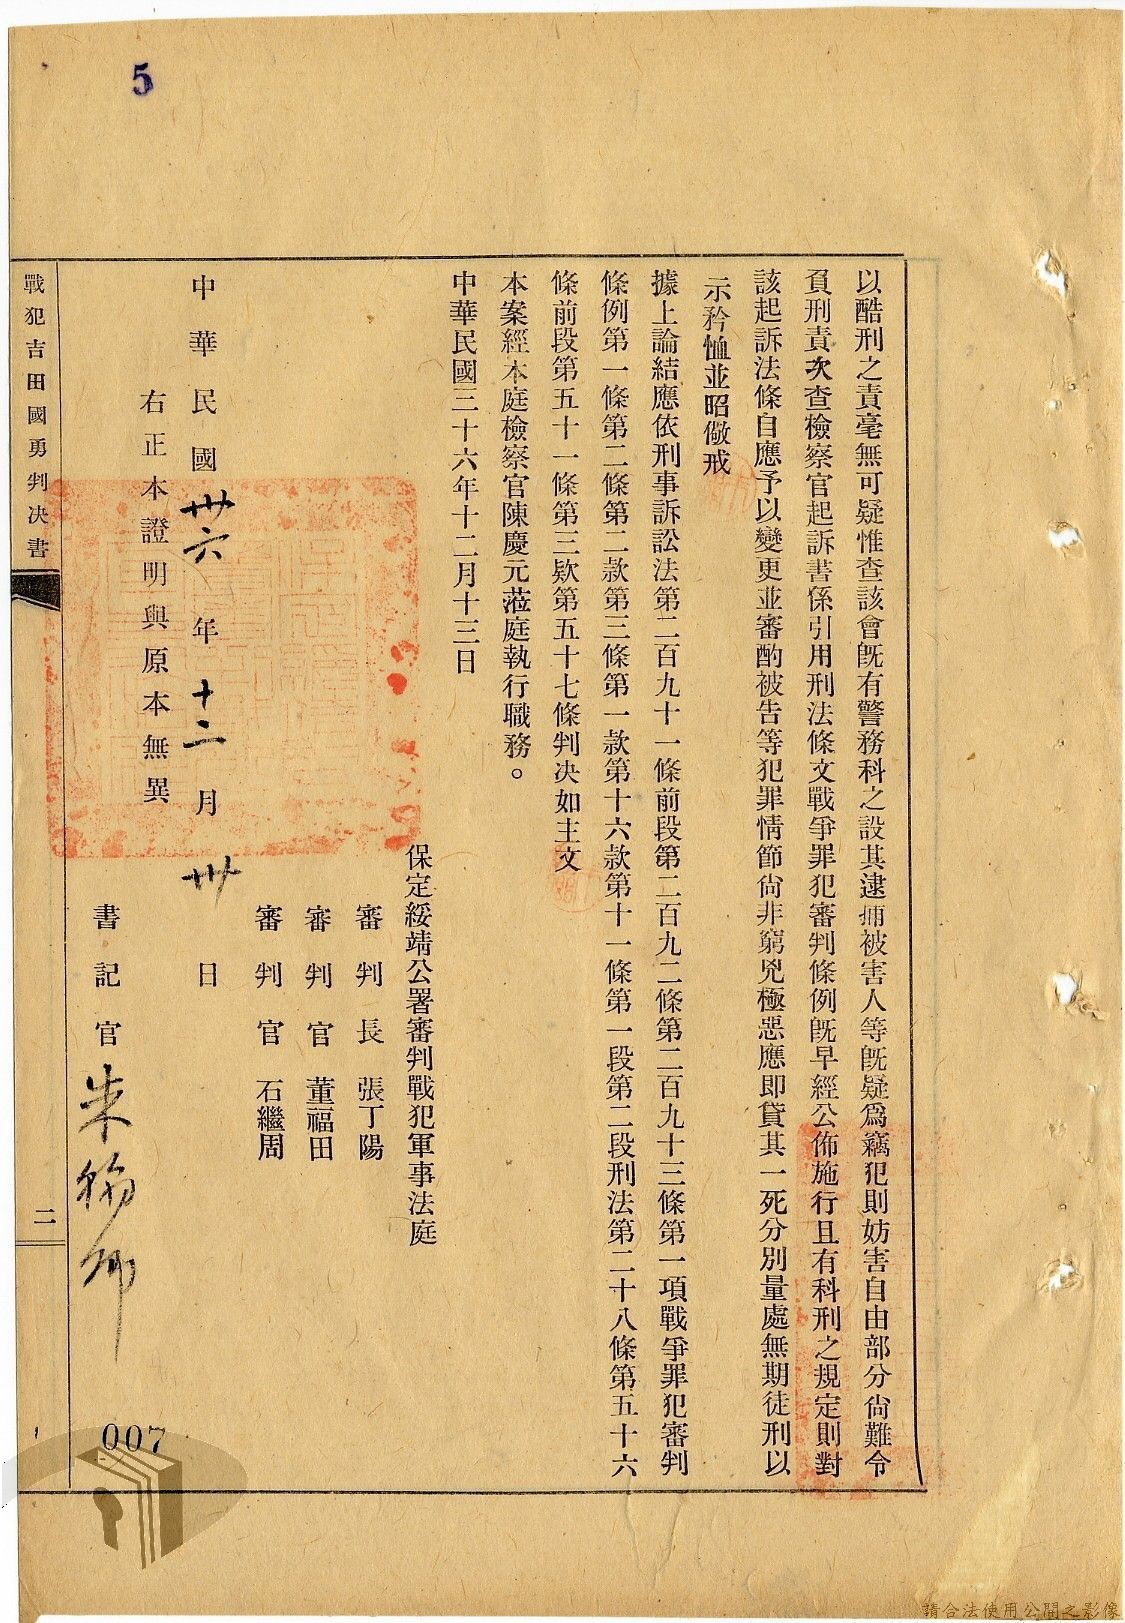 5
以酷刑之責毫無可疑惟查該會旣有警務科之設其逮捕被害人等旣疑爲竊犯則妨害自由部分尙難令
負刑責次查檢察官起訴書係引用刑法條文戰爭罪犯審判條例旣早經公佈施行且有科刑之規定則對
該起訴法條自應予以變更並審酌被告等犯罪情節尙非窮兇極惡應即貸其一死分別量處無期徒刑以
示矜恤並昭儆戒
據上論結應依刑事訴訟法第二百九十一條前段第二百九二條第二百九十三條第一項戰爭罪犯審判
條例第一條第二條第二款第三條第一款第十六款第十一條第一段第二段刑法第二十八條第五十六
條前段第五十一條第三欵第五十七條判决如主文
本案經本庭檢察官陳慶元蒞庭執行職務。
中華民國三十六年十二月十三日
保定綏靖公署審判戰犯軍事法庭
審判長 張丁陽
審判官 董福田
審判官 石繼周
中華民國卅六年十二月卅日
右正本證明與原本無異
書記官 朱
戰犯吉田國勇判決書 二
007
請合法使用公開之影像